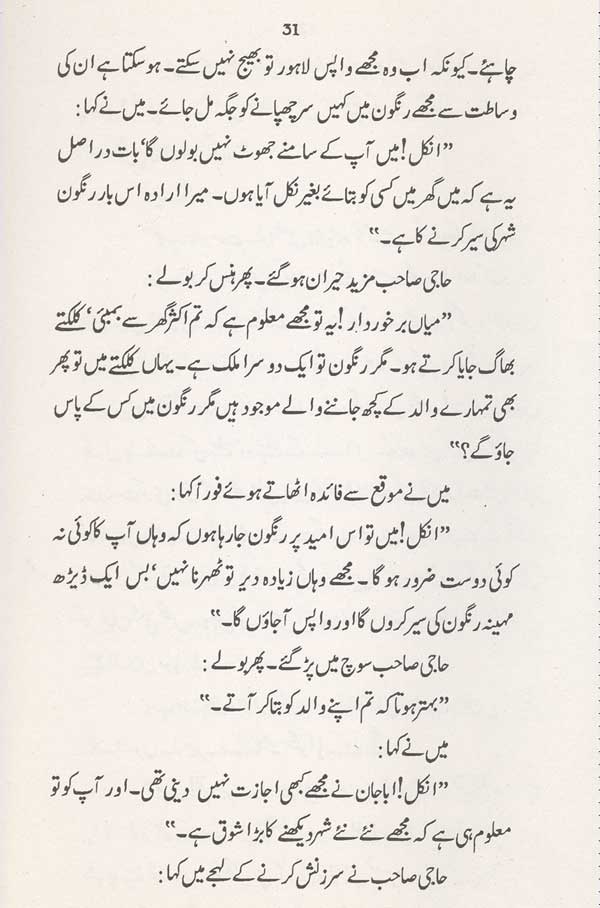 31
چاہئے۔ کیونکہ اب وہ مجھے واپس لاہور تو بھیج نہیں سکتے۔ ہو سکتا ہے ان کی
وساطت سے مجھے رنگون میں کہیں سر چھپانے کو جگہ مل جائے۔ میں نے کہا:
”انکل! میں آپ کے سامنے جھوٹ نہیں بولوں گا‘ بات دراصل
یہ ہے کہ میں گھر میں کسی کو بتائے بغیر نکل آیا ہوں۔ میرا ارادہ اس بار رنگون
شہر کی سیر کرنے کا ہے۔“
حاجی صاحب مزید حیران ہو گئے۔ پھر ہنس کر بولے:
”میاں برخوردار! یہ تو مجھے معلوم ہے کہ تم اکثر گھر سے بمبئی‘ کلکتے
بھاگ جایا کرتے ہو۔ مگر رنگون تو ایک دوسرا ملک ہے۔ یہاں کلکتے میں تو پھر
بھی تمہارے والد کے کچھ جاننے والے موجود ہیں مگر رنگون میں کس کے پاس
جاؤ گے؟“
میں نے موقع سے فائدہ اٹھاتے ہوئے فوراً کہا:
”انکل! میں تو اس امید پر رنگون جا رہا ہوں کہ وہاں آپ کا کوئی نہ
کوئی دوست ضرور ہو گا۔ مجھے وہاں زیادہ دیر تو ٹھہرنا نہیں‘ بس ایک ڈیڑھ
مہینہ رنگون کی سیر کروں گا اور واپس آ جاؤں گا۔“
حاجی صاحب سوچ میں پڑ گئے۔ پھر بولے:
”بہتر ہوتا کہ تم اپنے والد کو بتا کر آتے۔“
میں نے کہا:
”انکل! ابا جان نے مجھے کبھی اجازت نہیں دینی تھی۔ اور آپ کو تو
معلوم ہی ہے کہ مجھے نئے نئے شہر دیکھنے کا بڑا شوق ہے۔“
حاجی صاحب نے سرزنش کرنے کے لہجے میں کہا: